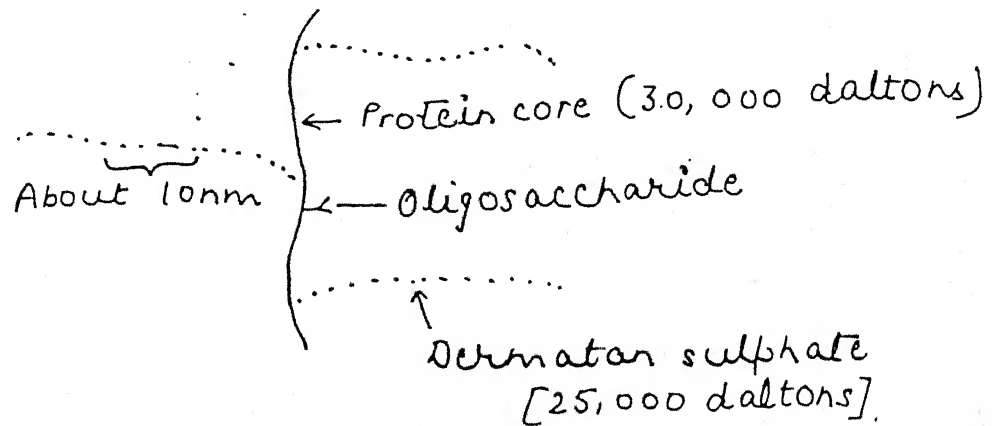 Protein core (3.0, 000 daltons)
About 10nm
Oligosaccharide
Dermatan sulphate
[25, 000 daltons].